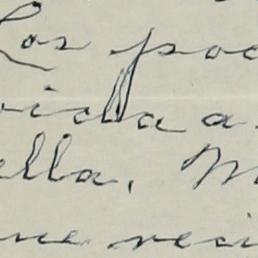 Los poc
vida a
ella. M
ue reci